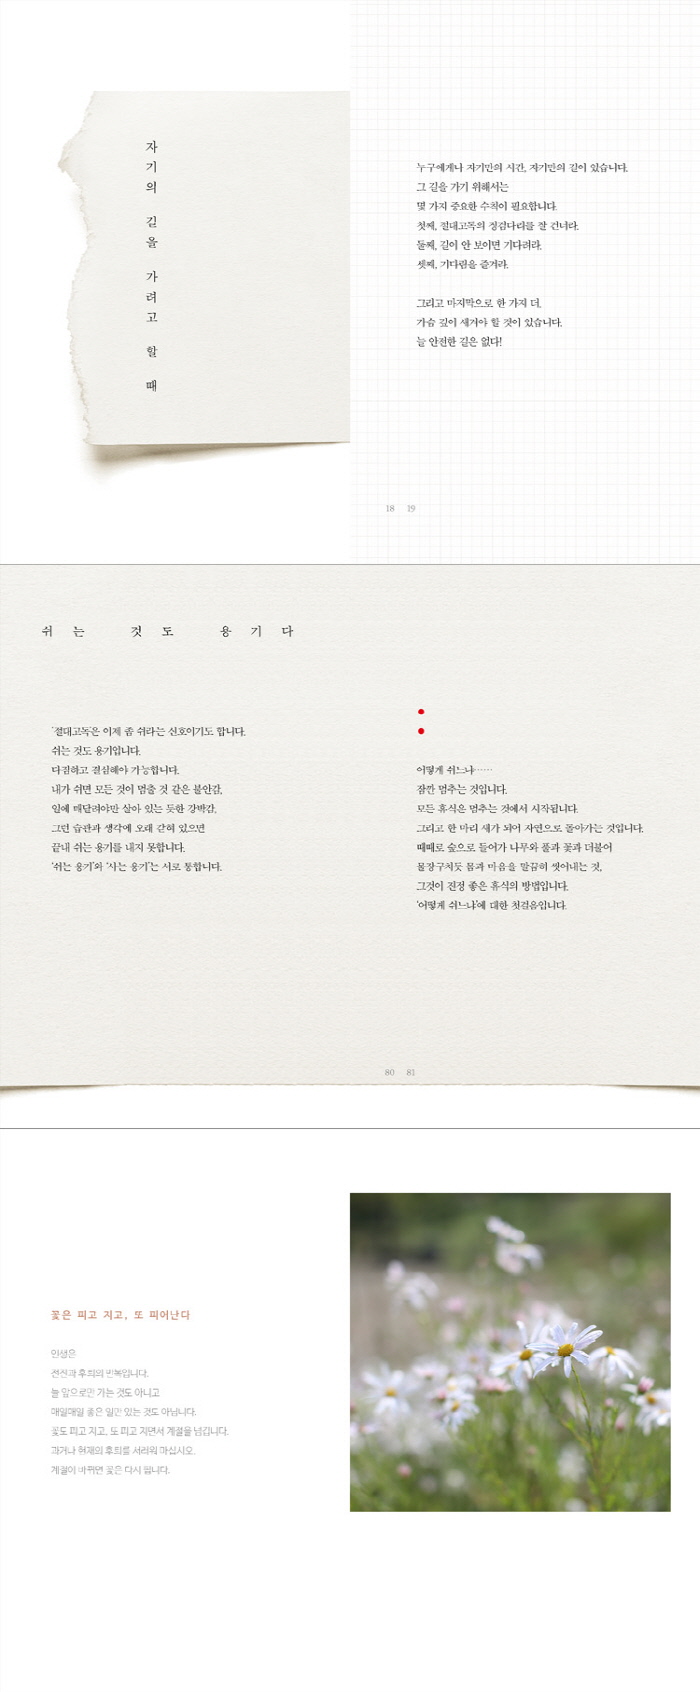 자기의 길을 가려고 할 때
누구에게나 자기만의 시간, 자기만의 길이 있습니다.
그 길을 가기 위해서는
몇 가지 중요한 수칙이 필요합니다.
첫째, 절대고독의 징검다리를 잘 건너라.
둘째, 길이 안 보이면 기다려라.
셋째, 기다림을 즐겨라.
그리고 마지막으로 한 가지 더.
가슴 깊이 새겨야 할 것이 있습니다.
늘 안전한 길은 없다!
18 19
쉬는 것도 용기다
'절대고독'은 이제 좀 쉬라는 신호이기도 합니다.
쉬는 것도 용기입니다.
다짐하고 결심해야 가능합니다.
내가 쉬면 모든 것이 멈출 것 같은 불안감,
일에 매달려야만 살아 있는 듯한 강박감,
그런 습관과 생각에 오래 갇혀 있으면
끝내 쉬는 용기를 내지 못합니다.
'쉬는 용기'와 '사는 용기'는 서로 통합니다.
어떻게 쉬느냐……
잠깐 멈추는 것입니다.
모든 휴식은 멈추는 것에서 시작됩니다.
그리고 한 마리 새가 되어 자연으로 돌아가는 것입니다.
때때로 숲으로 들어가 나무와 풀과 꽃과 더불어
물장구치듯 몸과 마음을 말끔히 씻어내는 것,
그것이 진정 좋은 휴식의 방법입니다.
'어떻게 쉬느냐'에 대한 첫걸음입니다.
80 81
꽃은 피고 지고, 또 피어난다
인생은
전진과 후퇴의 반복입니다.
늘 앞으로만 가는 것도 아니고
매일매일 좋은 일만 있는 것도 아닙니다.
꽃도 피고 지고, 또 피고 지면서 계절을 넘깁니다.
과거나 현재의 후퇴를 서러워 마십시오.
계절이 바뀌면 꽃은 다시 핍니다.